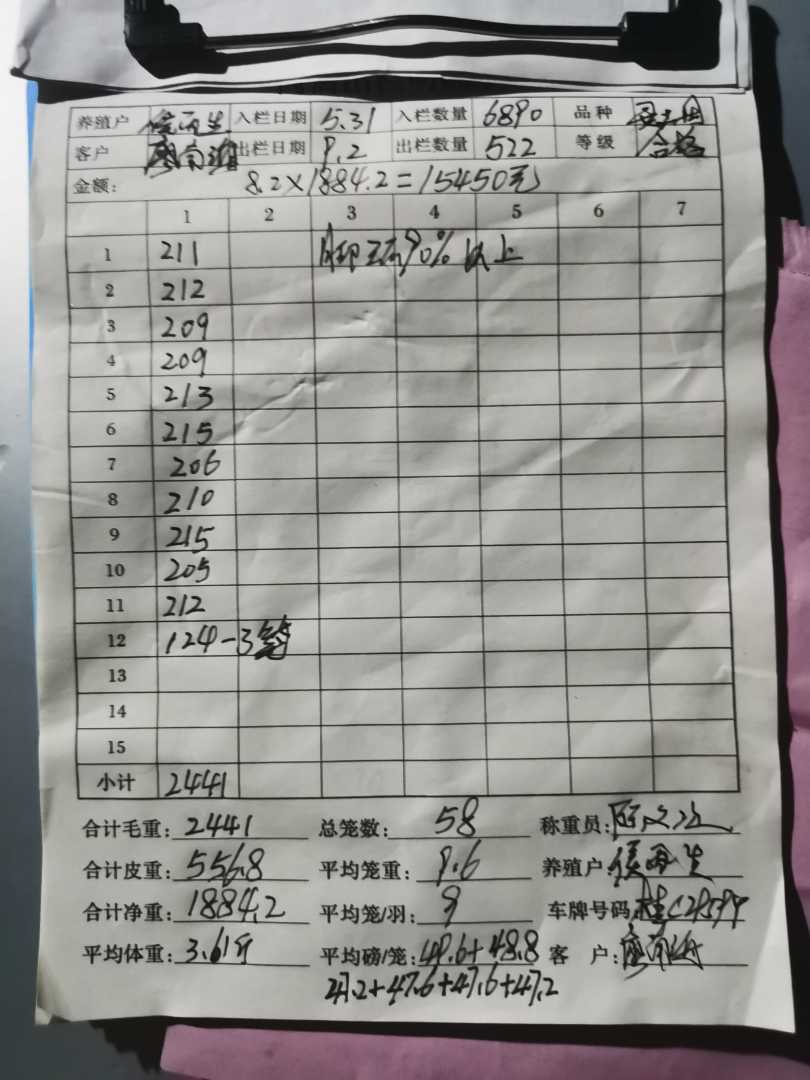 养殖户 侯丙生 入栏日期 5.31 入栏数量 6890 品种
客户 出栏日期 9.2 出栏数量 522 等级 合格
金额: 8.2×1884.2=15450元
1 2 3 4 5 6 7
1 211 脚 90% 以上
2 212
3 209
4 209
5 213
6 215
7 206
8 210
9 215
10 205
11 212
12 124-3笼
13
14
15
小计 2441
合计毛重: 2441 总笼数: 58 称重员:
合计皮重: 556.8 平均笼重: 9.6 养殖户: 侯丙生
合计净重: 1884.2 平均笼/羽: 9 车牌号码:
平均体重: 3.61斤 平均磅/笼: 49.6+48.8 客 户:
47.2+47.6+47.6+47.2